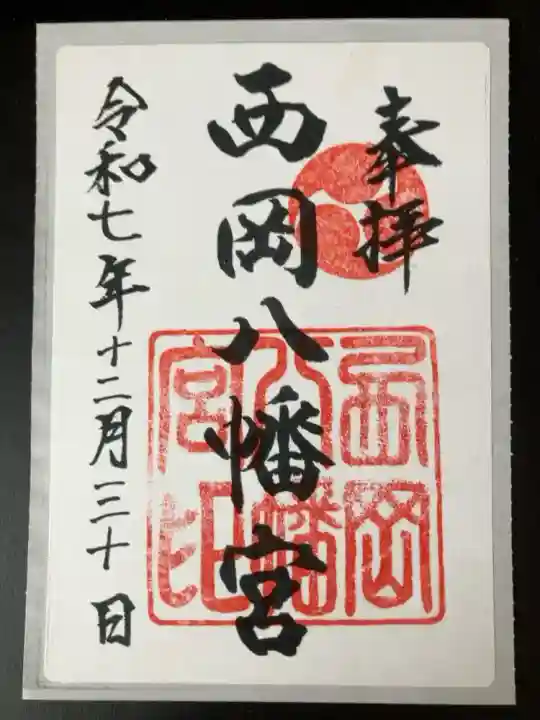 奉拝
西岡八幡宮
令和七年十二月三十日
西岡
八幡
宮印